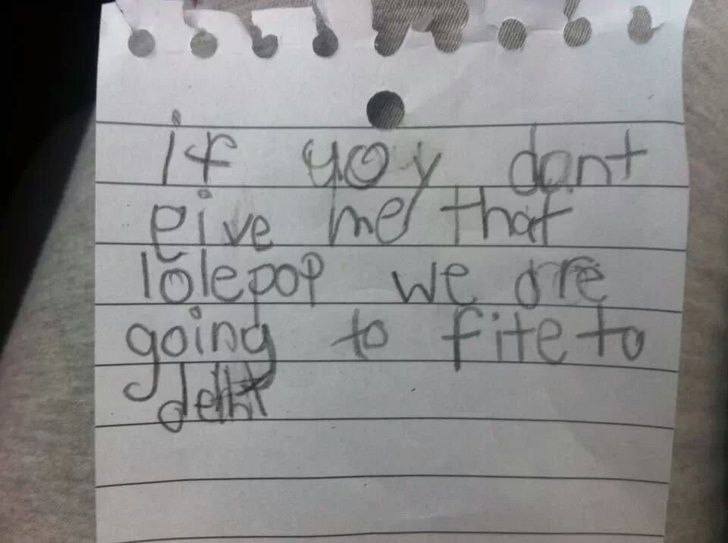 if yoy dont
eive me that
lolepop we are
going to fite to
deht